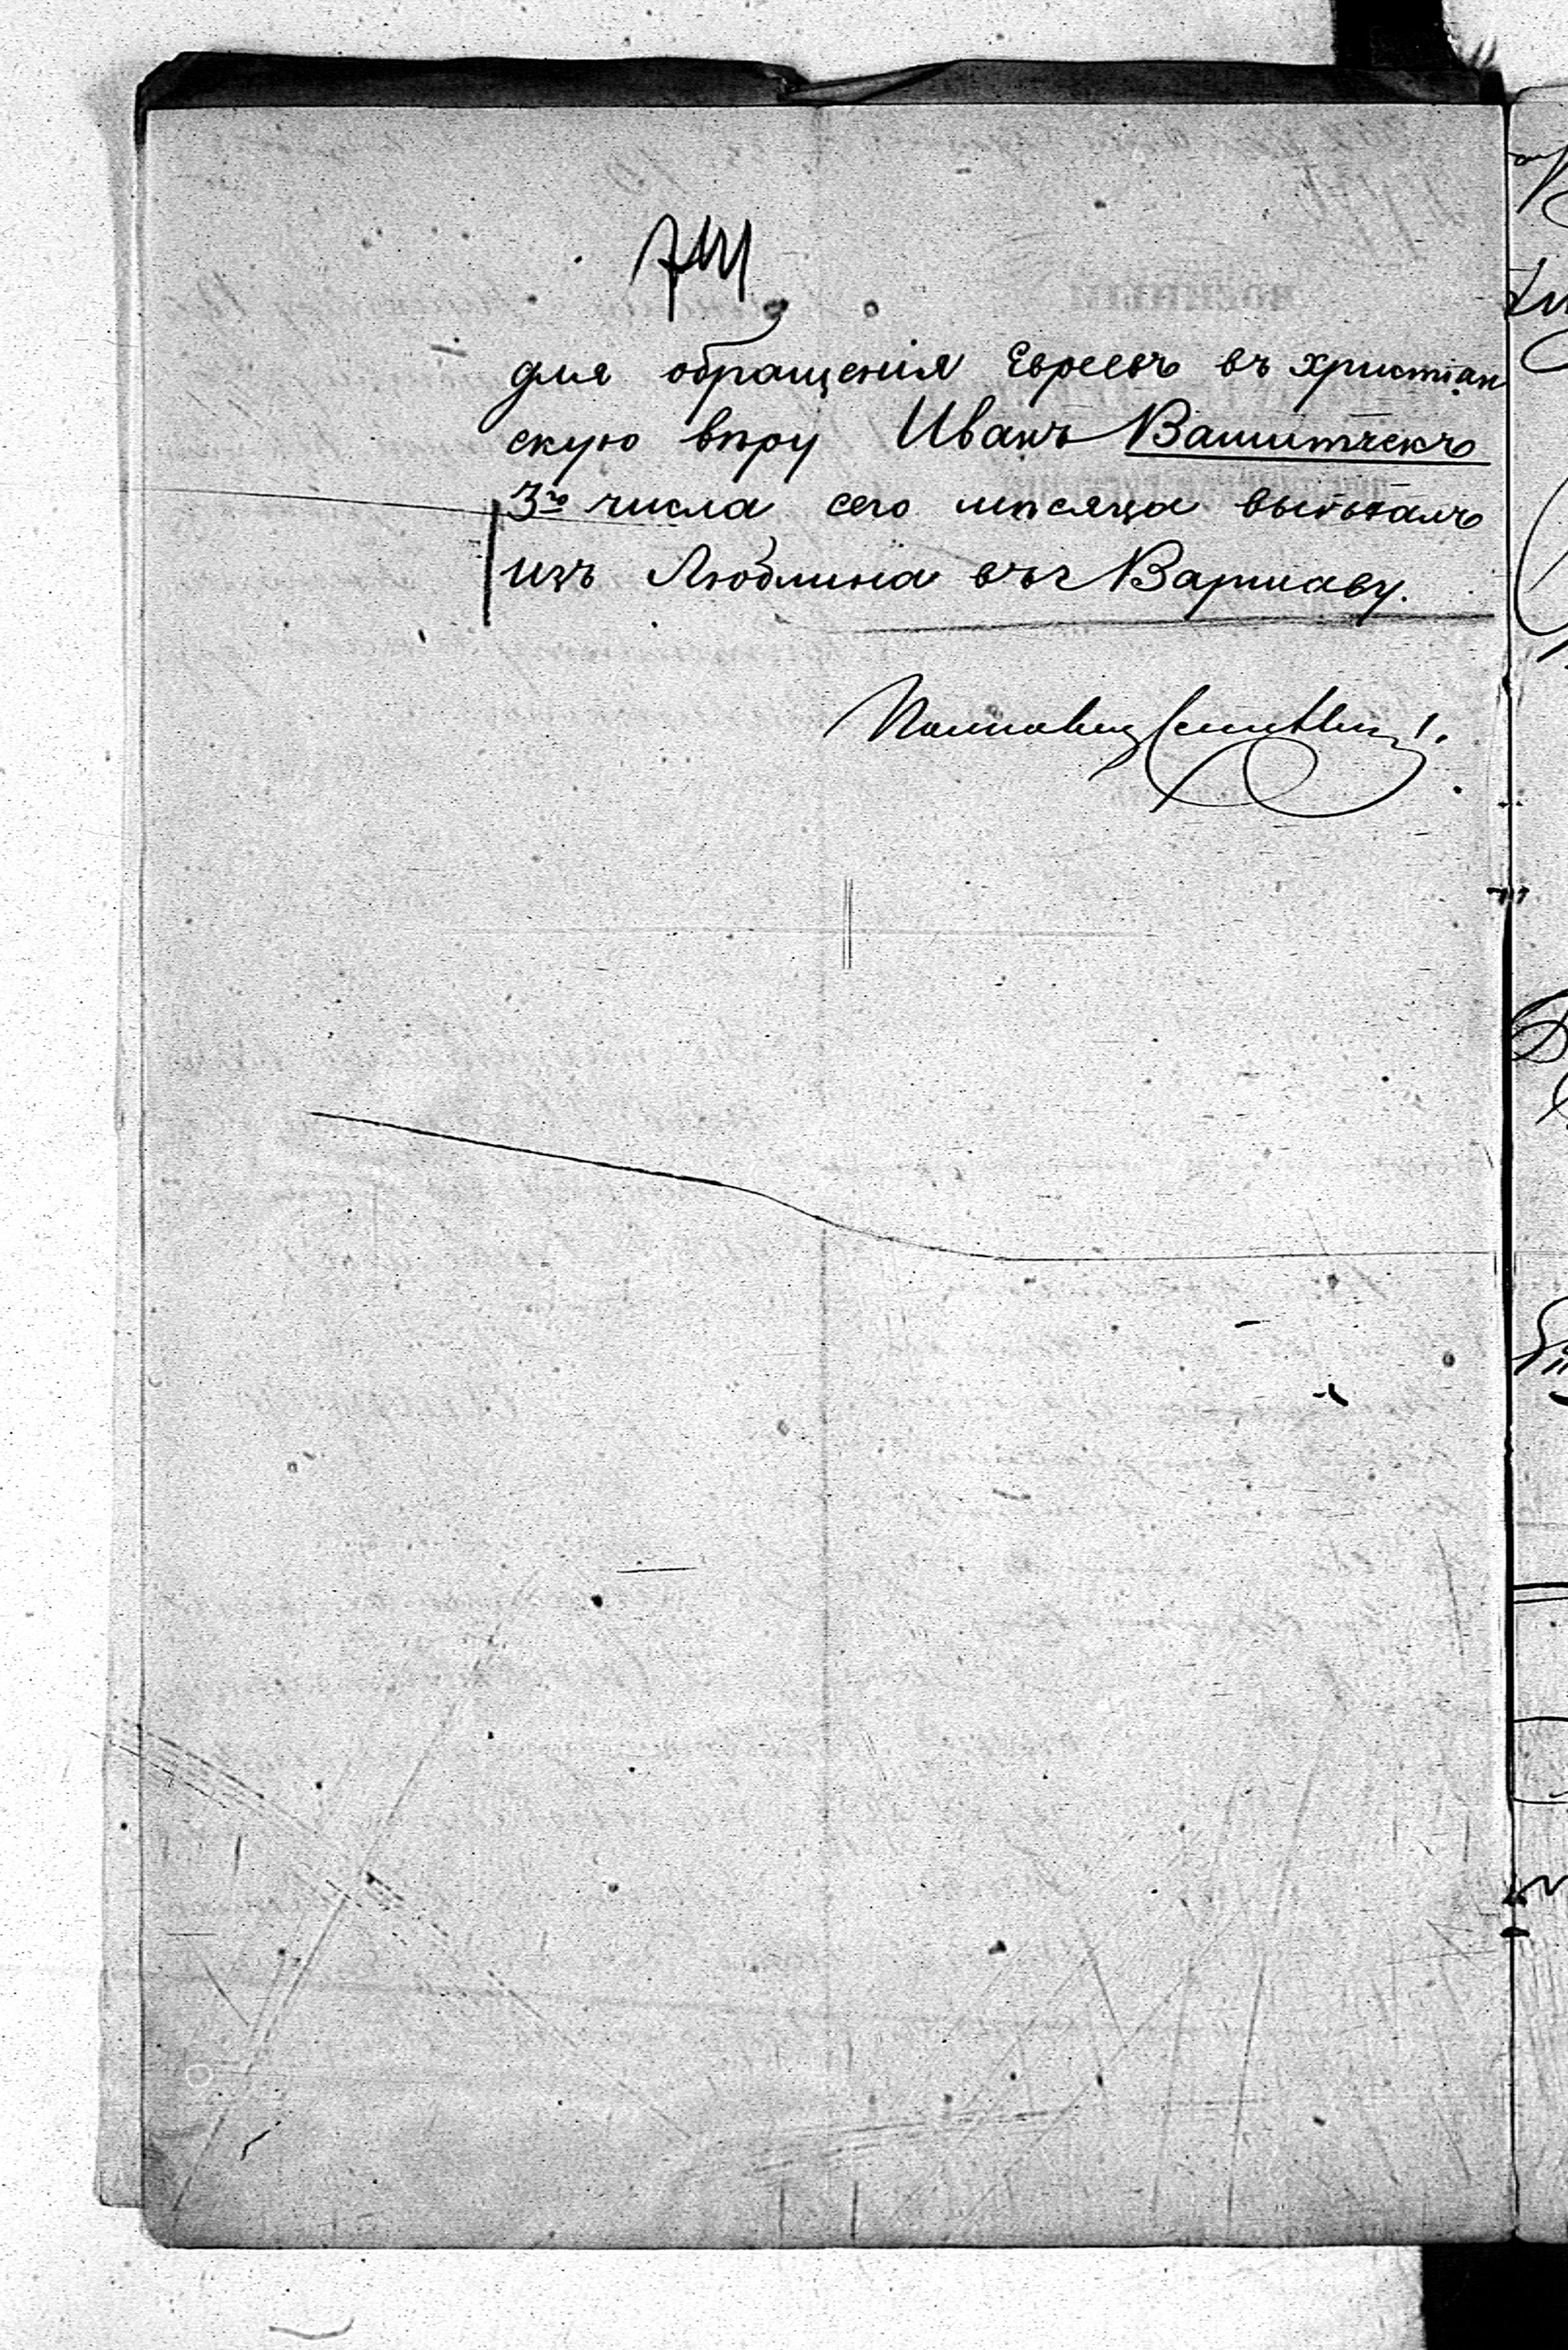 для обращенія Евреевъ въ христіан
скую вѣру Иванъ Вашитчекъ
3го числа сего мѣсяца выѣхалъ
изъ Люблина въ г Варшаву.
Полковник